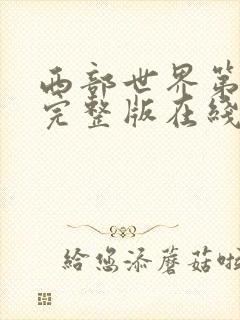 西部世界第
完整版在线
给您添蘑菇啦